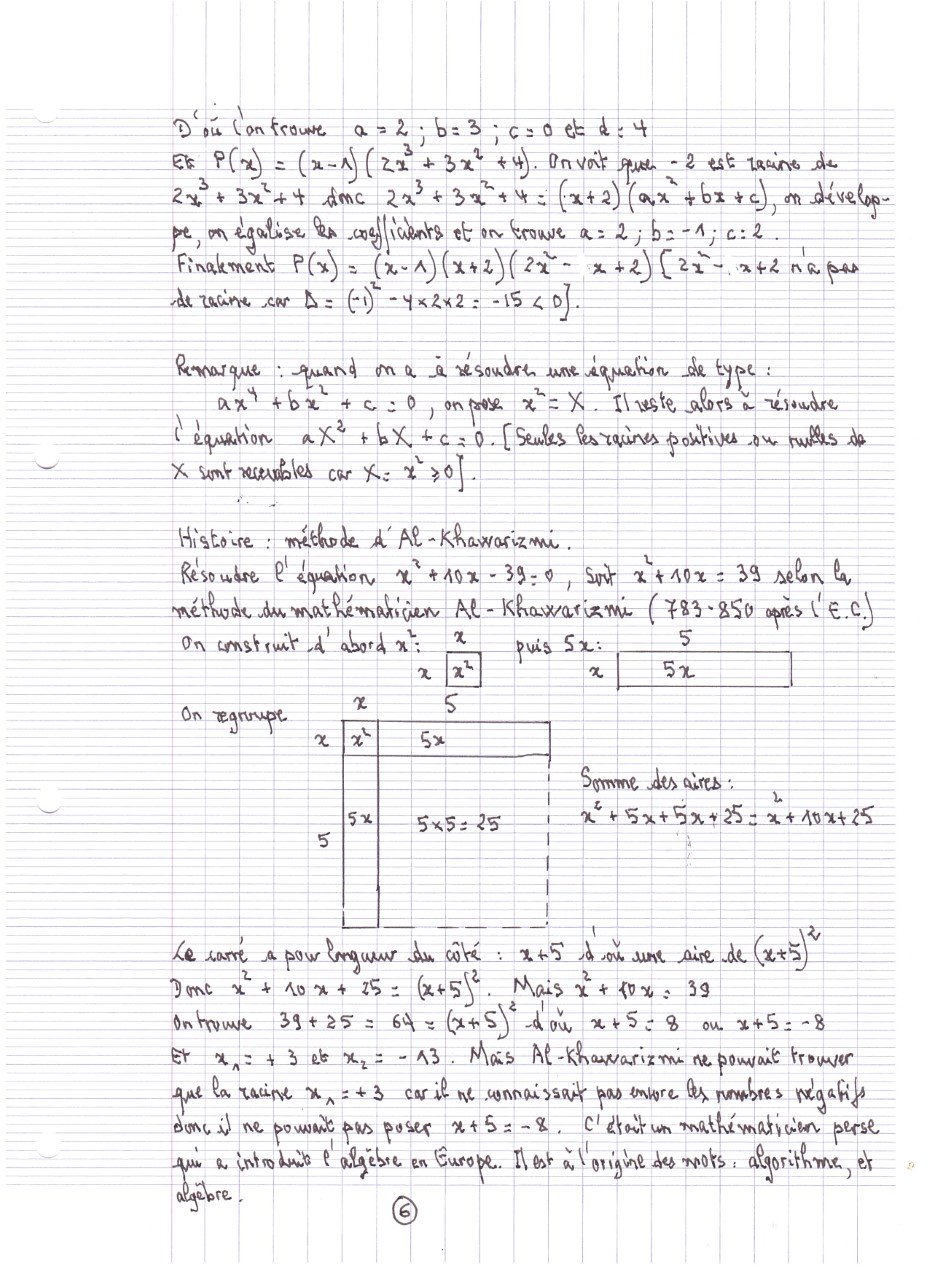 D'où l'on trouve a = 2 ; b = 3 ; c = 0 et d = 4
Et P(x) = (x-1)(2x³ + 3x² + 4). On voit que -2 est racine de
2x³ + 3x² + 4 donc 2x³ + 3x² + 4 = (x+2)(ax² + bx + c), on dévelop-
pe, on égalise les coefficients et on trouve a = 2 ; b = -1 ; c = 2.
Finalement P(x) = (x-1)(x+2)(2x² - x + 2) [2x² - x + 2 n'a pas
de racine car Δ = (-1)² - 4×2×2 = -15 < 0].
Remarque : quand on a à résoudre une équation de type :
ax⁴ + bx² + c = 0, on pose x² = X. Il reste alors à résoudre
l'équation aX² + bX + c = 0. [Seules les racines positives ou nulles de
X sont recevables car X = x² ⩾ 0].
Histoire : méthode d'Al-Khawarizmi.
Résoudre l'équation x² + 10x - 39 = 0, Soit x² + 10x = 39 selon la
méthode du mathématicien Al-Khawarizmi (783-850 après l'E.C.)
On construit d'abord x² : x puis 5x : 5
x x² x 5x
On regroupe x 5
x x² 5x
Somme des aires :
5 5x 5×5 = 25 x² + 5x + 5x + 25 = x² + 10x + 25
Le carré a pour longueur du côté : x+5 d'où une aire de (x+5)²
Donc x² + 10x + 25 = (x+5)². Mais x² + 10x = 39
On trouve 39 + 25 = 64 = (x+5)² d'où x+5 = 8 ou x+5 = -8
Et x₁ = +3 et x₂ = -13. Mais Al-Khawarizmi ne pouvait trouver
que la racine x₁ = +3 car il ne connaissait pas encore les nombres négatifs
donc il ne pouvait pas poser x+5 = -8. C'était un mathématicien perse
qui a introduit l'algèbre en Europe. Il est à l'origine des mots : algorithme, et
algèbre.
6